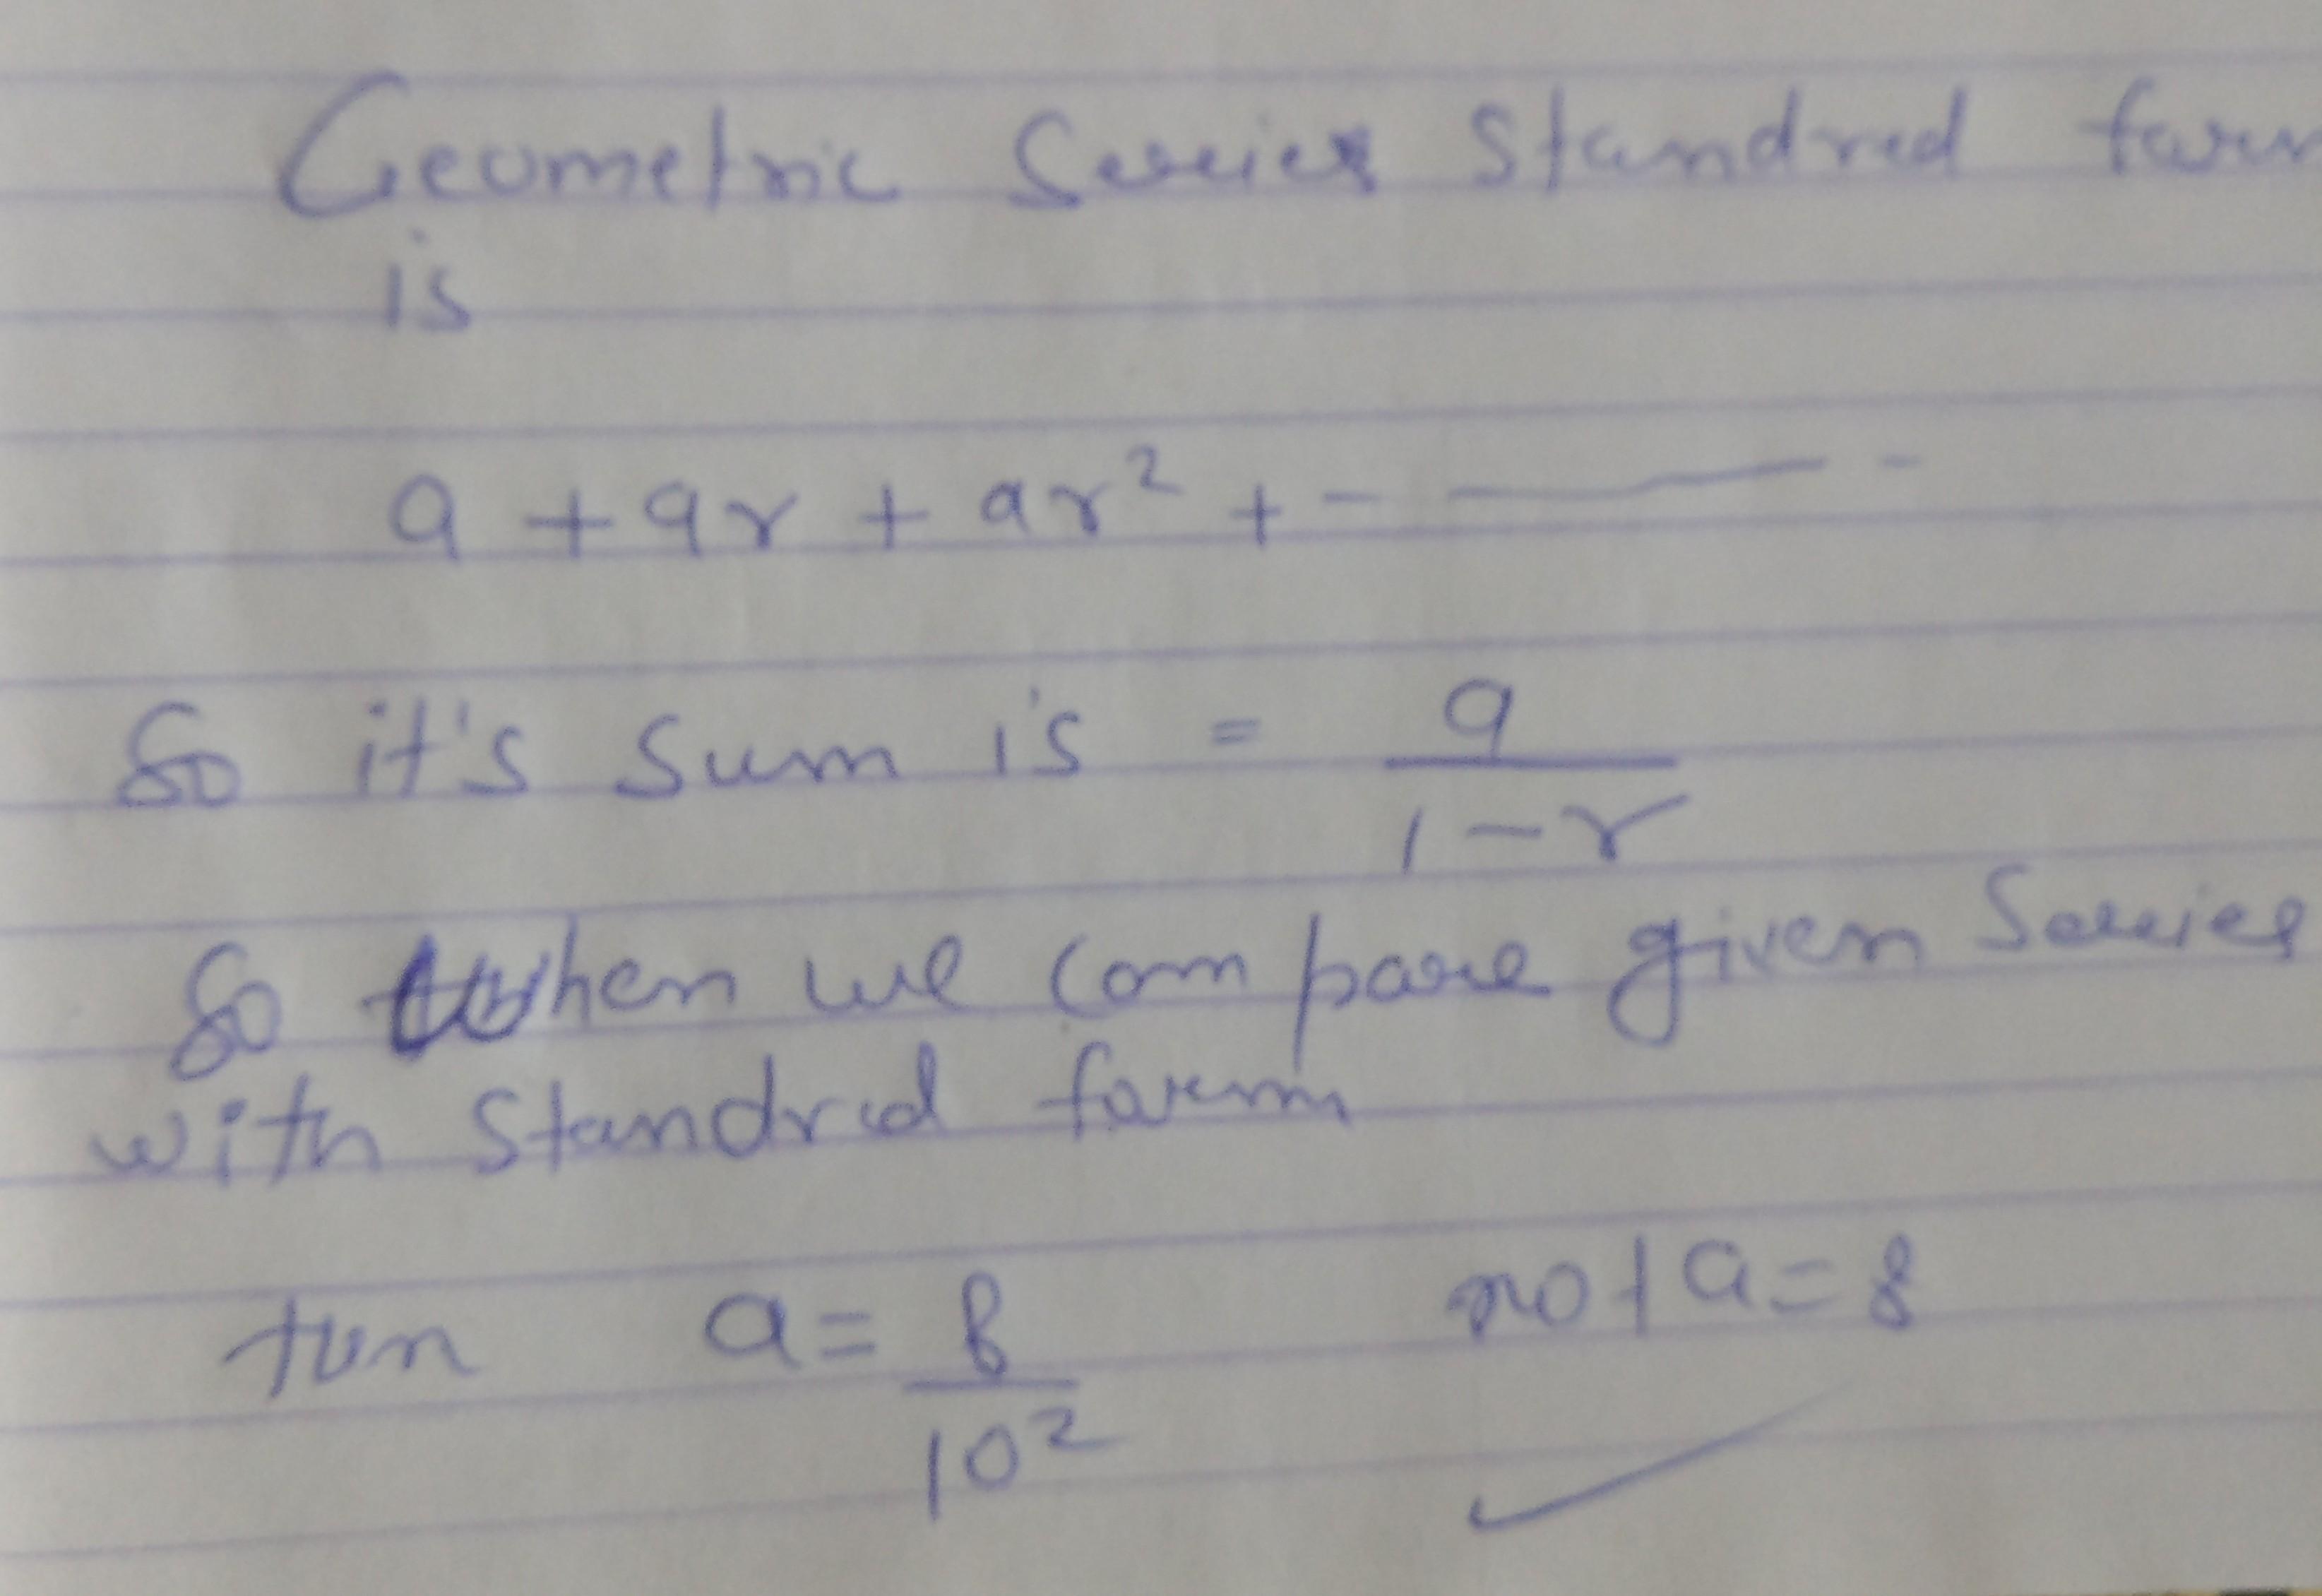 Geometric Series Standred form
is
a + ar + ar² + - ——— -
So it's Sum is = a/(1-r)
So when we compare given Series
with Standred form
then a = 8/10² not a = 8